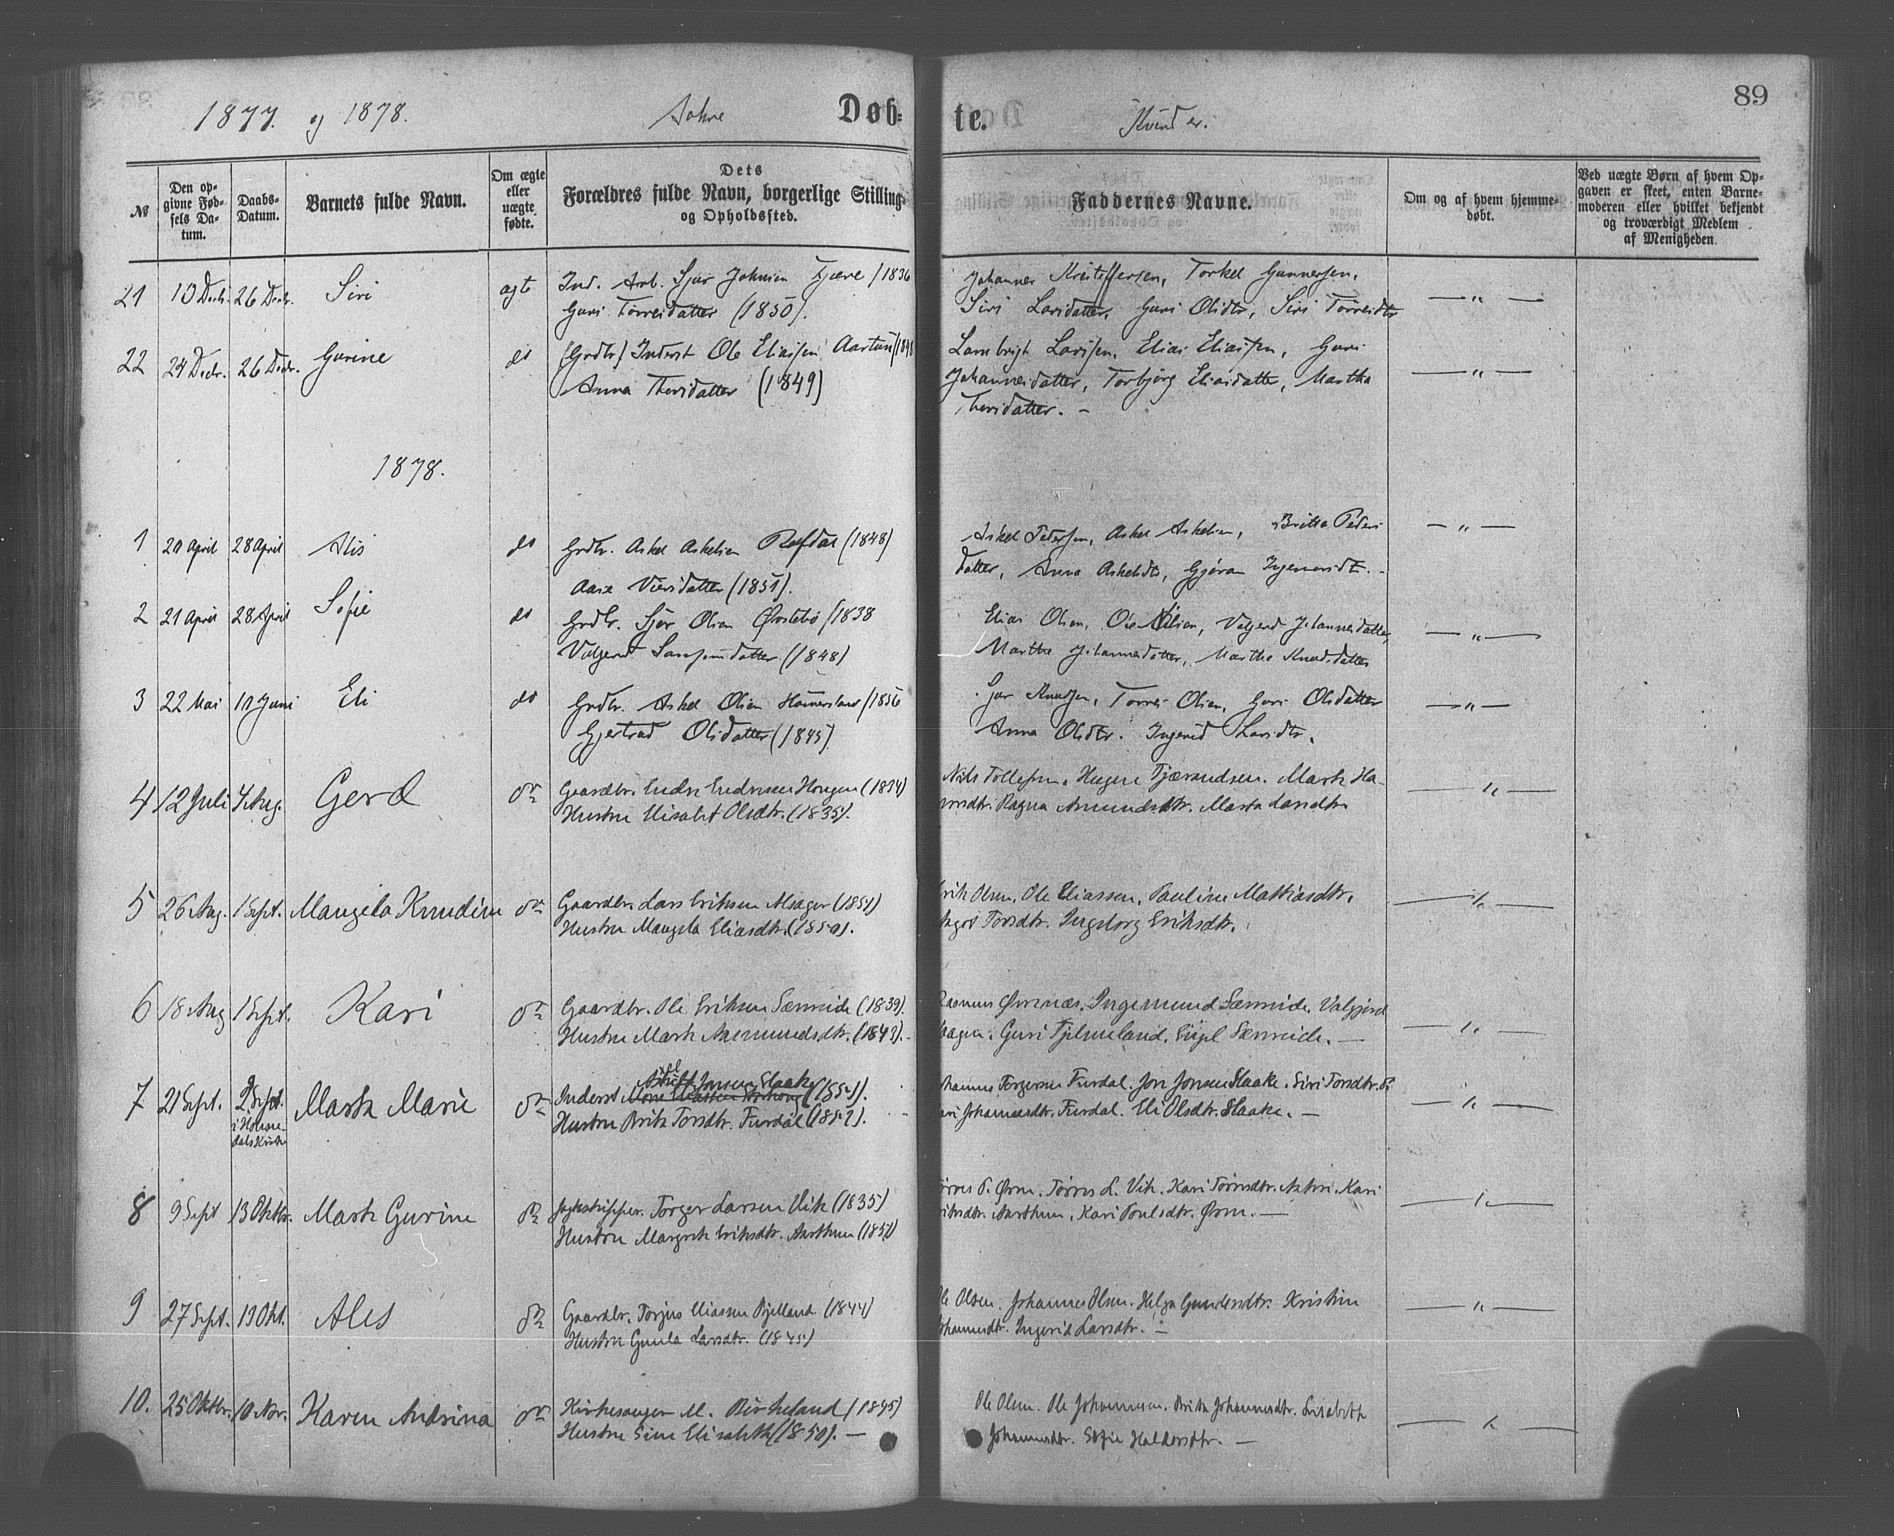 1877. og 1878.
Døb-
te.
Kvinder.
89
№
Den op-
givne Fød-
sels Da-
tum.
Daabs-
Datum.
Barnets fulde Navn.
Om ægte
eller
uægte
fødte.
Dets
Forældres fulde Navn, borgerlige Stilling
og Opholdssted.
Faddernes Navne.
Om og af hvem hjemme-
døbt.
Ved uægte Børn af hvem Op-
gaven er skeet, enten Barne-
moderen eller hvilket bekjendt
og troværdigt Medlem
af Menigheden.
21 10 Decb. 26 Decb. Siri ægte Ind. Arb. Sjur Johnsen (1836
Guri Torreisdatter (1850).
Johannes Kristoffersen, Torkel Gunnersen,
Siri Larsdatter, Guri Olsdtr, Siri Torreisdtr
22 24 Decbr. 26 Decbr. Gurine do (Grdbr) Inderst Ole Eliassen Aartun
Anna Thorsdatter (1849)
Lambrigt Larssen, Elias Eliassen, Guri
Johannesdatter, Torbjørg Eliasdatter, Martha
Thorsdatter. —
1878.
1 20 April 28 April Alis do Grdbr. Askel Askelsen Rafdal (1848)
Aase Viersdatter (1851).
Askel Pedersen, Askel Askelsen, Britta Peders
datter, Anna Askelsdtr, Gjøran
2 21 April 28 April Sofie do Grdbr. Sjur Olsen Østebø (1838
Valgerd Samsonsdatter (1848)
Elias Olsen, Ole Nilsen, Valgerd Johannesdatter,
Marthe Johannesdatter, Marthe Knudsdatter
3 22 Mai 10 Juni Eli do Grdbr. Askel Olsen (1856
Gjertrud Olsdatter (1845)
Sjur Knudsen, Torrei Olsen, Guri Olsdatter
Anna Olsdtr. Ingerid Larsdtr.
4 12 Juli 4 Aug. Gerd do Gaardbr. Endre Endresen Hougen (1834)
Hustru Elisabet Olsdtr. (1835).
Nils Tollefsen, Mart Ha-
Ragna Amundsdtr. Marta Larsdtr
5 26 Aug. 1 Sept. Mangela Knudine do Gaardbr. Lars Eriksen Alsager (1854)
Hustru Mangela Eliasdtr. (1850).
Erik Olsen, Ole Eliassen, Pauline Mathiasdtr.
Torsdtr. Ingeborg Eriksdtr.
6 18 Aug 1 Sept. Kari do Gaardbr. Ole Eriksen Sænreide (1839).
Hustru Marta Aamundsdtr. (1843).
Rasmus Ørenæs, Ingemund Sænreide, Valgjerd
Guri Fjelmeland, Engel Sænreide. —
7 21 Sept. 29 Sept. Marta Marie do Inderst Jonsen Slaake (1854).
Hustru Brita Torsdtr. Furdal (1852).
Torgersen Furdal, Jon Jonsen Slaake, Siri Torsdtr.
Johannesdtr. Furdal. Eli Olsdtr. Slaake. —
8 9 Sept 13 Oktbr. Marta Gurine do Jagtskipper. Torger Larsen Vik (1835)
Hustru Margreta Eriksdtr. Aarthun (1851)
Torres P. Ørn. Torres L. Vik. Kari Kari
Eriksdtr. Aarthun, Kari Poulsdtr. Ørn. —
9 27 Sept. 13 Okt. Ales do Gaardbr. Torjus Eliassen Fjelland (1844)
Hustru Gunla Larsdtr. (1845)
Ole Olsen. Johannes Olsen. Helga Gundersdtr. Kristine
Johannesdtr. Ingerid Larsdtr. —
10. 25 Oktbr. 10 Nov. Karen Andrina do Kirkesanger M. Birkeland (1845)
Hustru Sine Elisabeth (1850). —
Ole Olsen. Ole Johannesen. Britha Johannesdtr. Lisabeth
Johannesdtr. Sofie Haldorsdtr. —